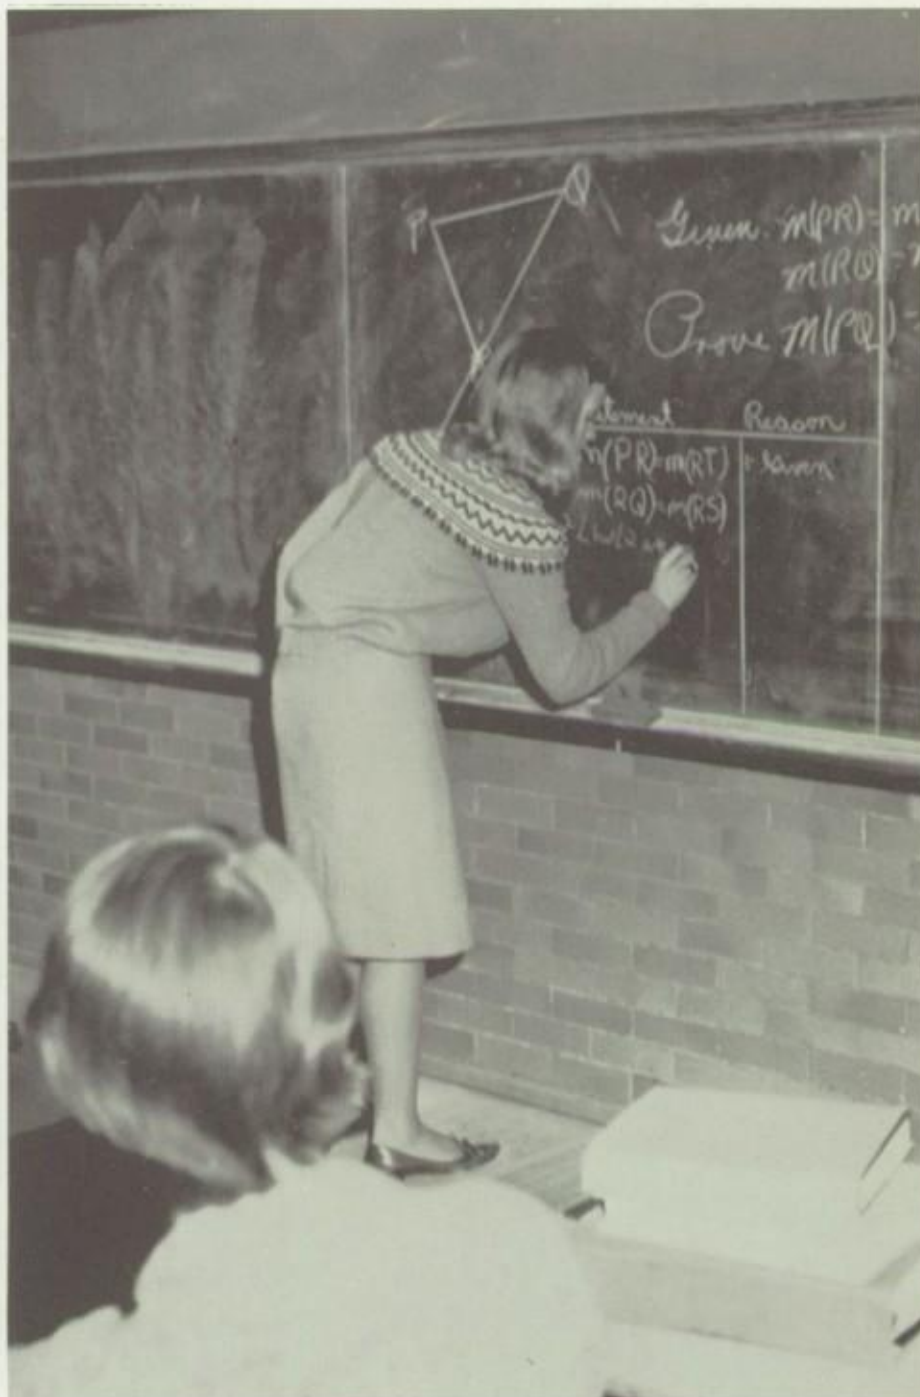 P
Q
Given. m(PR) = m
m(RQ) =
Prove m(PQ) =
Reason
m(PR)=m(RT) Given
m(RQ)=m(RS)